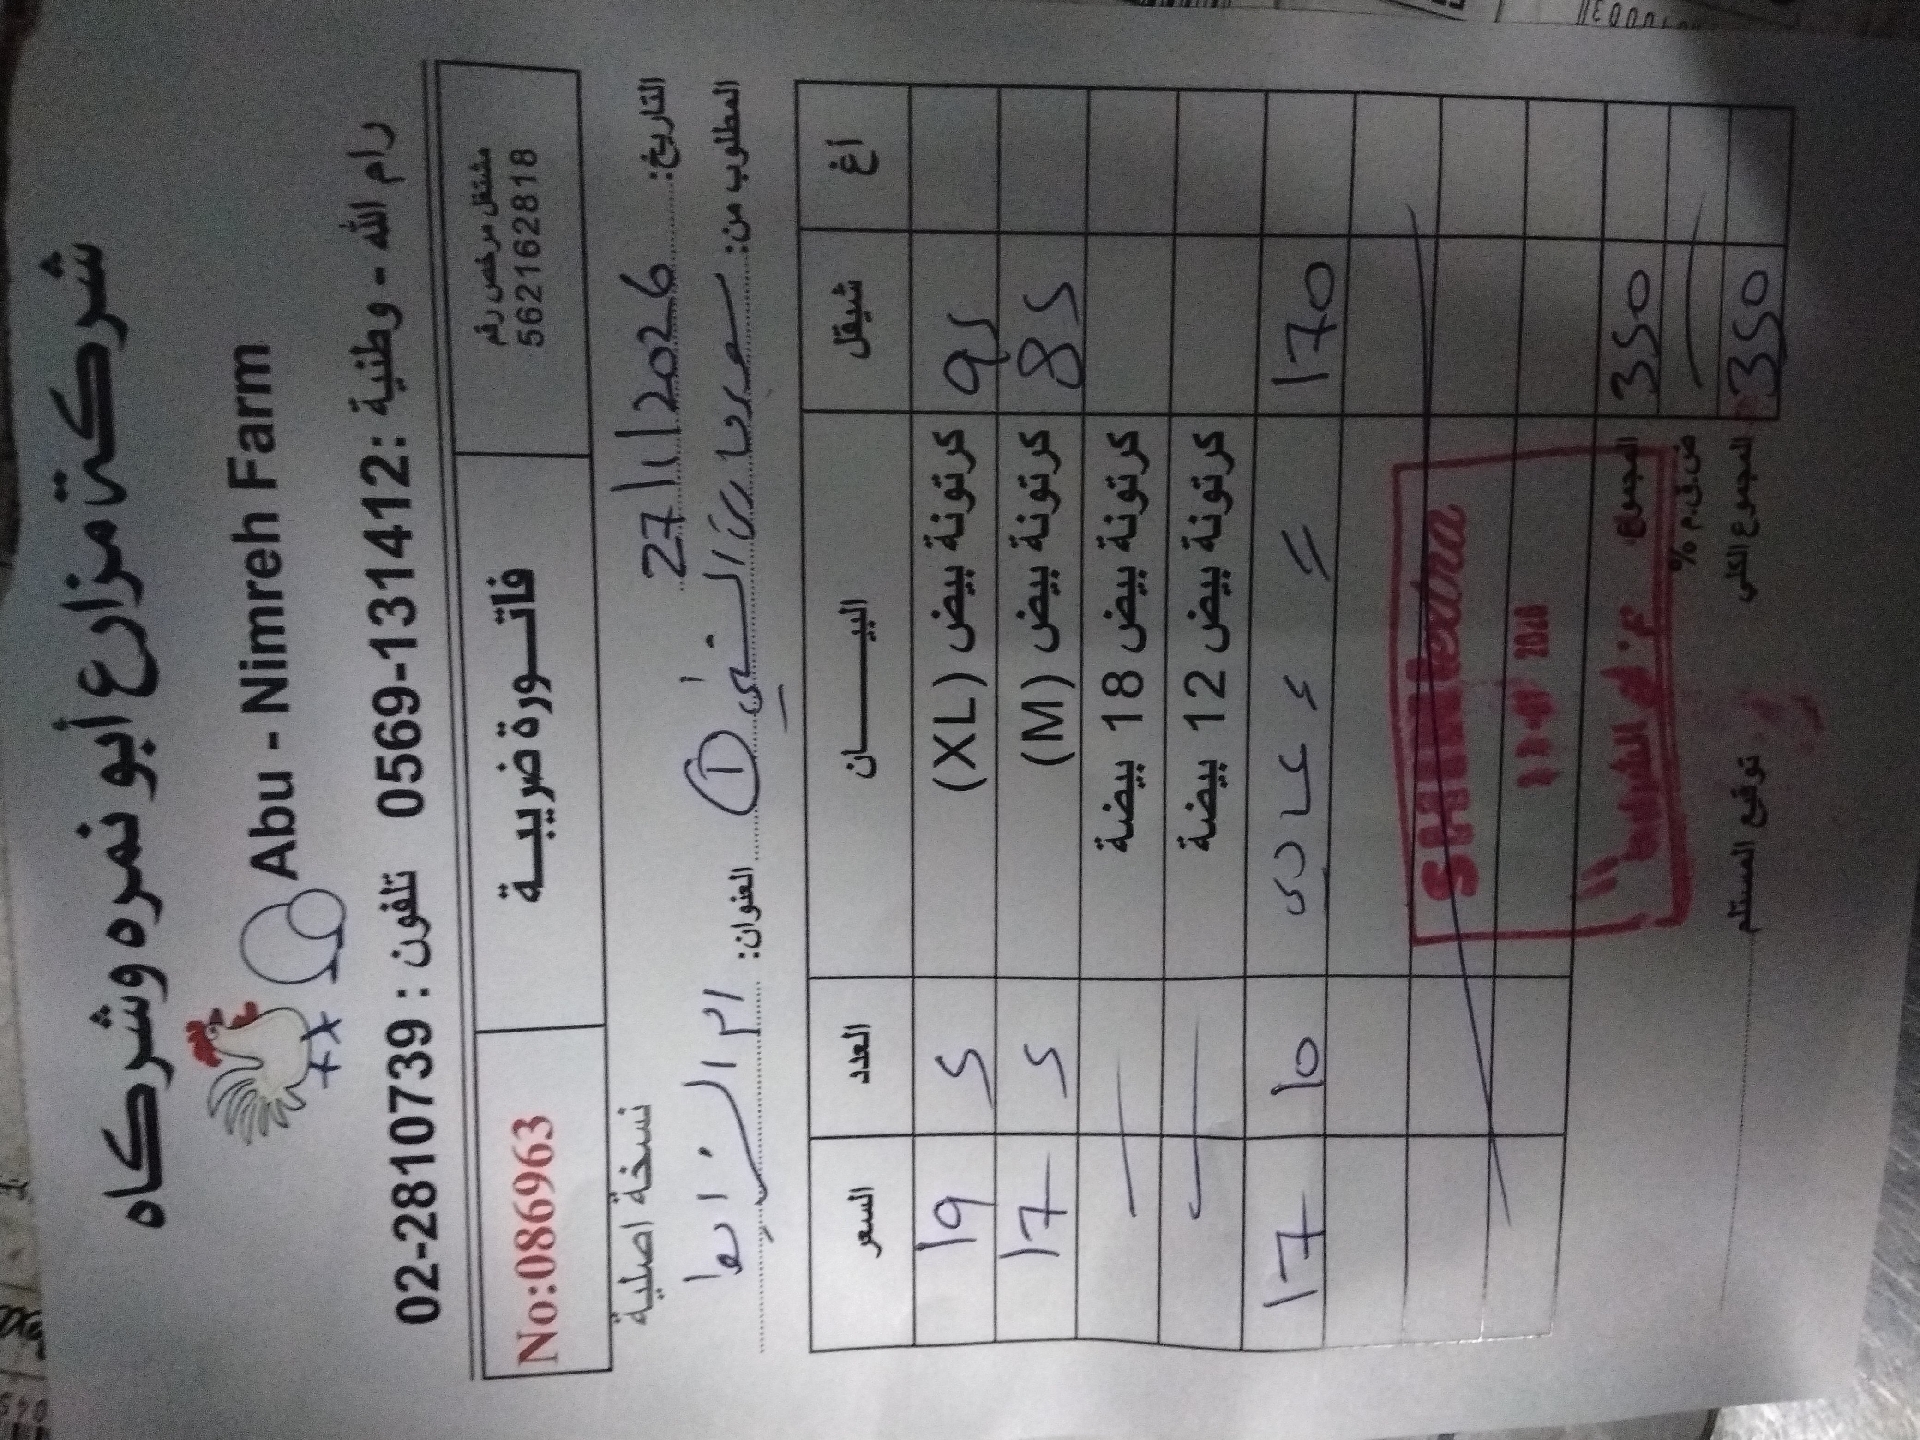 شركة مزارع أبو نمره وشركاه
Abu - Nimreh Farm
رام الله - وطنية : 0569-131412 تلفون : 02-2810739
مشتغل مرخص رقم
562162818
فاتورة ضريبية
No:086963
التاريخ: 27/1/2026
نسخة اصلية
المطلوب من:
① العنوان: ام الشرايط
أغ شيقل البيان العدد السعر
95 كرتونة بيض (XL) 5 19
85 كرتونة بيض (M) 5 17
كرتونة بيض 18 بيضة
كرتونة بيض 12 بيضة
170 عادي 10 17
SHINI extra
المجموع 350
ض.ق.م %
المجموع الكلي 350
توقيع المستلم